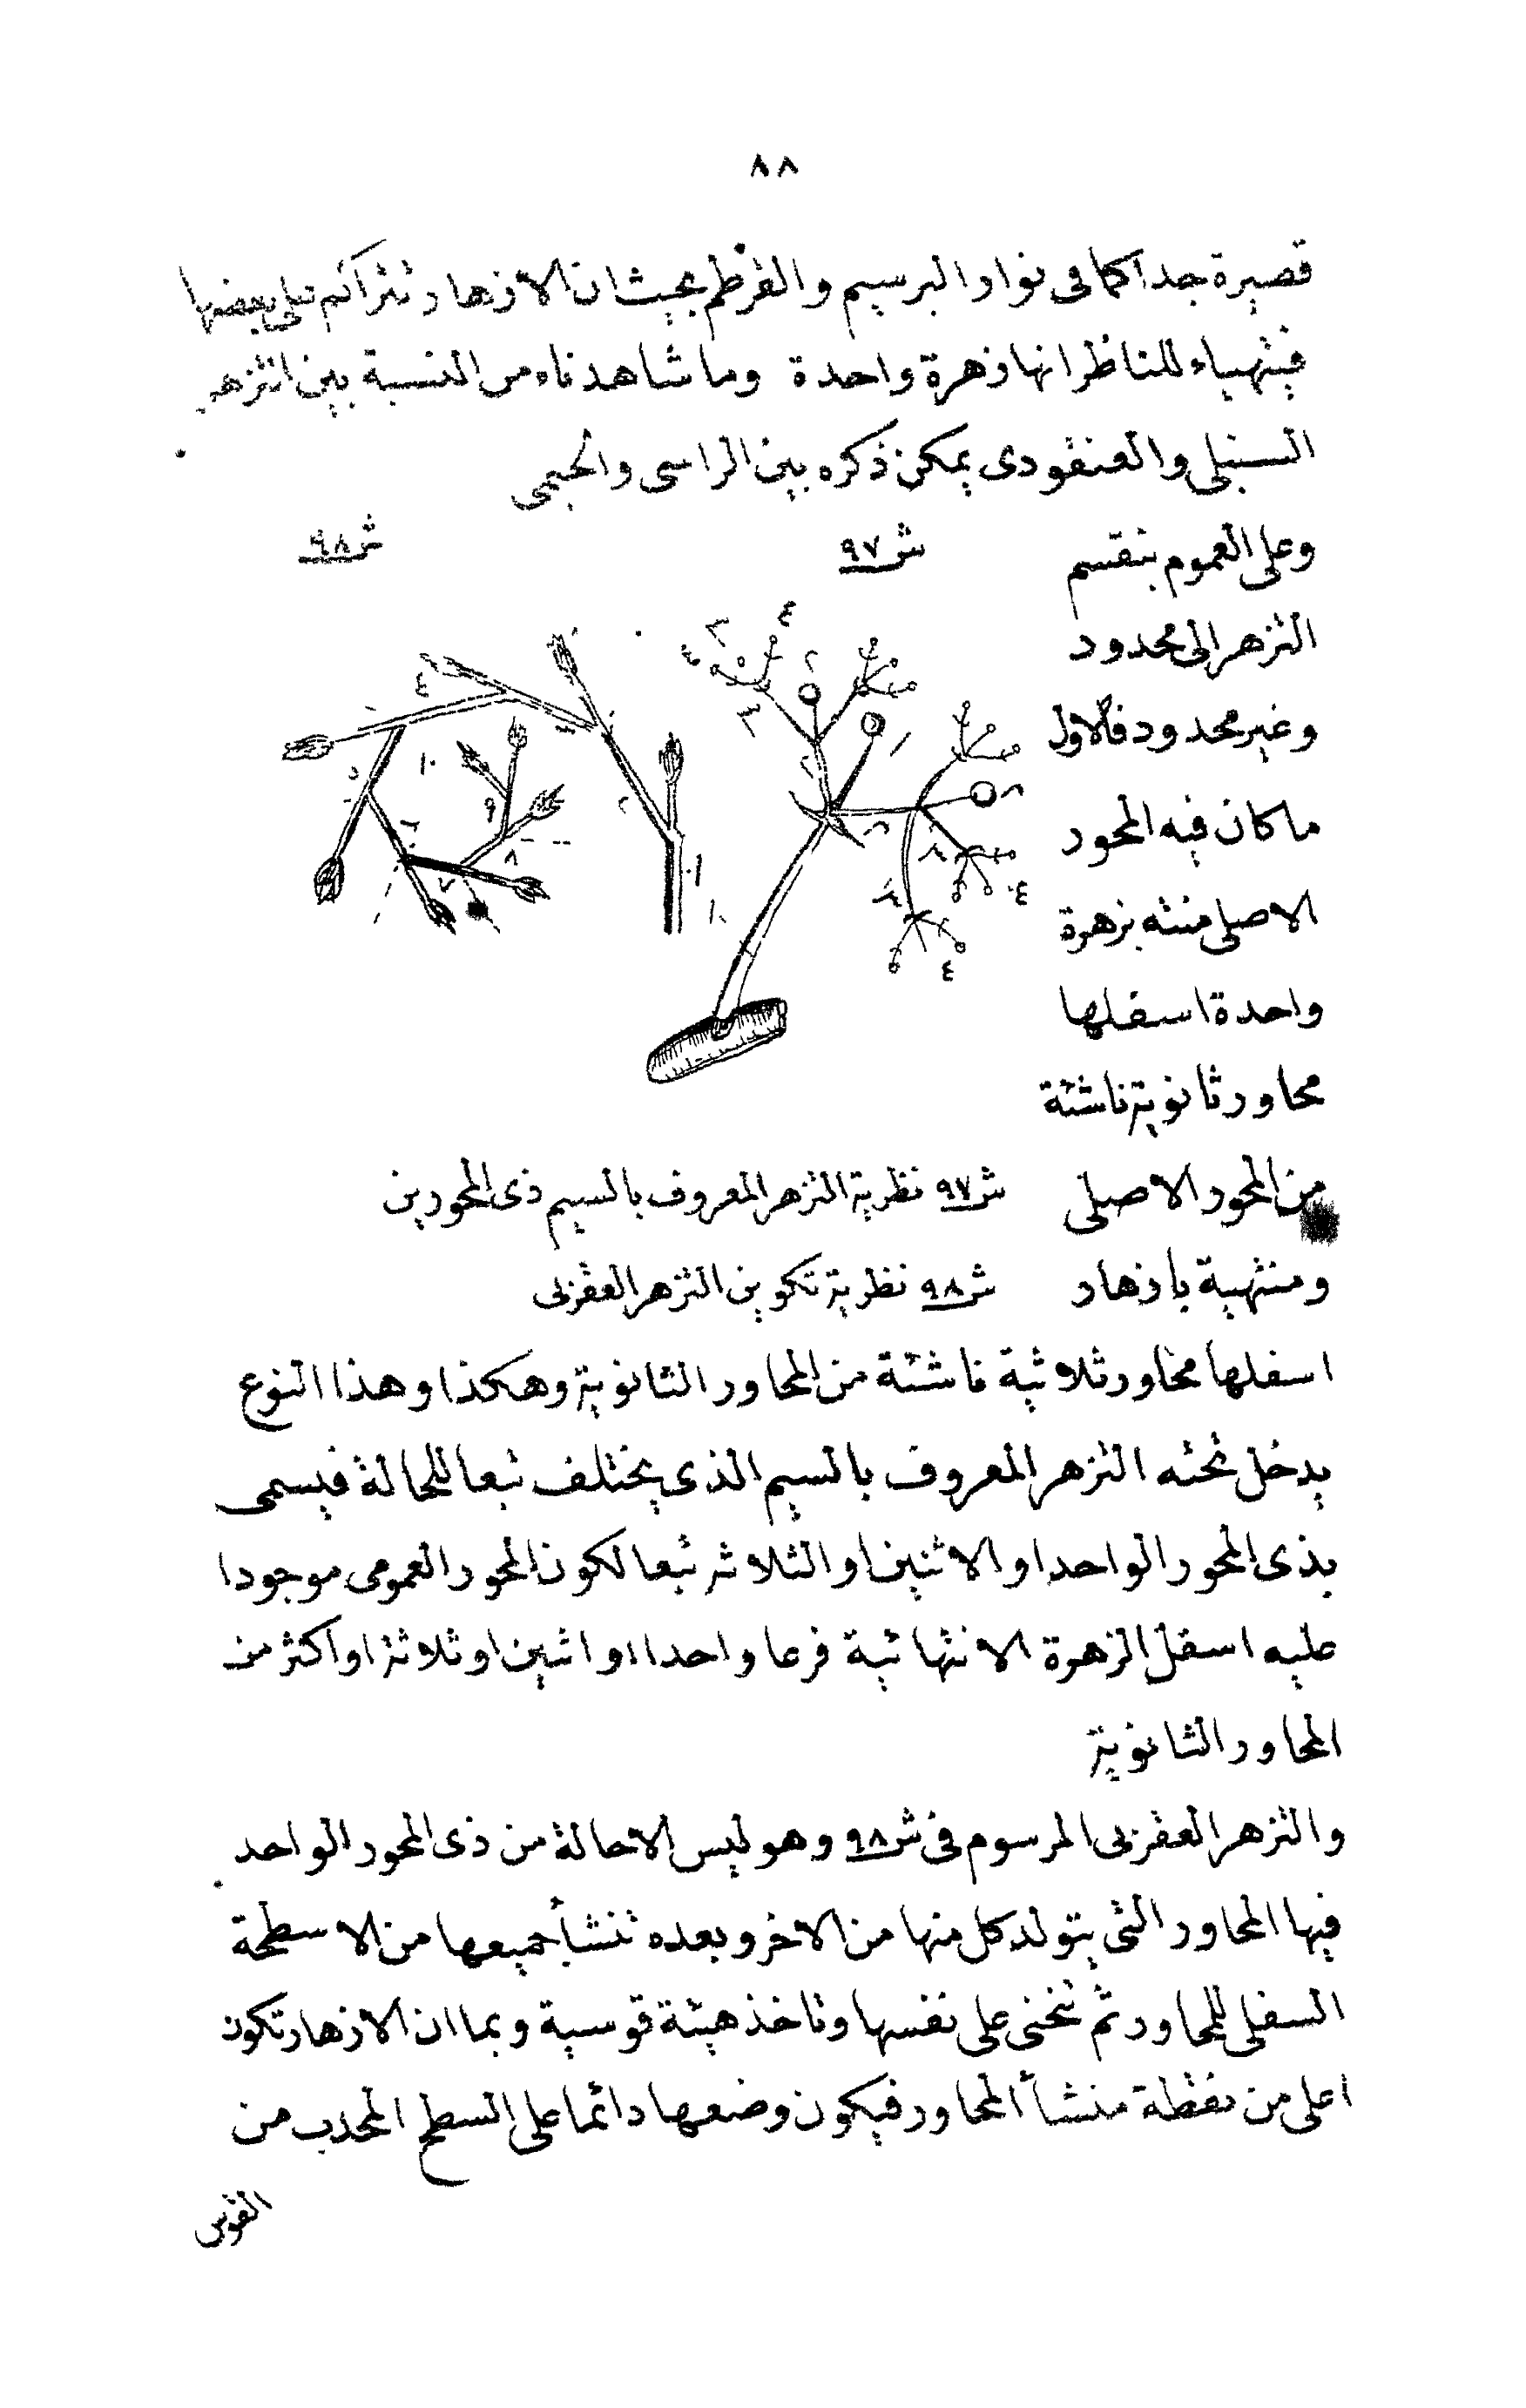 ٨٨
قصيرة جدا كما فى نوار البرسيم والقرطم بحيث ان الازهار تتراكم على بعضها
فيتهياء للناظر انها زهرة واحدة وما شاهدناه من النسبة بين التزهر
السنبلى والعنقودى يمكن ذكره بين الراسى والخيمى
وعلى العموم ينقسم
ش٩٧
ش٩٨
التزهر الى محدود
وغير محدود فالاول
ما كان فيه المحور
الاصلى منته بزهرة
واحدة اسفلها
محاور ثانوية ناشئة
من المحور الاصلى
ومنتهية بازهار
ش٩٧ نظرية التزهر المعروف بالسيم ذى المحورين
ش٩٨ نظرية تكوين التزهر العقربى
اسفلها محاور ثلاثية ناشئة من المحاور الثانوية وهكذا وهذا النوع
يدخل تحته التزهر المعروف بالسيم الذى يختلف تبعا للحالة فيسمى
بذى المحور الواحد او الاثنين او الثلاثه تبعا لكون المحور العمومى موجودا
عليه اسفل الزهرة الانتهائية فرعا واحدا او اثنين او ثلاثة او اكثر من
المحاور الثانوية
والتزهر العقربى المرسوم فى ش٩٨ وهو ليس الاحالة من ذى المحور الواحد
فيها المحاور التى يتولد كل منها من الاخر وبعده تنشأ جميعها من الاسطحة
السفلى للمحاور ثم تنحنى على نفسها وتاخذ هيئة قوسية وبما ان الازهار تكون
اعلى من نقطة منشأ المحاور فيكون وضعها دائما على السطح المحدب من
القوس